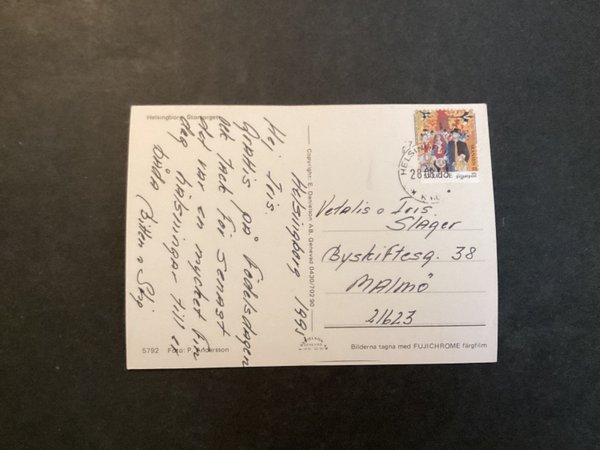 Helsingborg. Stortorget
Helsingborg 1995
Hej Iris.
Grattis på födelsedagen
och tack för senast
det var en mycket fin
dag hälsningar till er
båda Britten o Stig
Copyright: E. Danielson AB, Genevad 0430/702 90
Vetalis o Iris.
Slager
Byskiftesg. 38
MALMÖ
21623
5792 Foto: P. Andersson
Bilderna tagna med FUJICHROME färgfilm